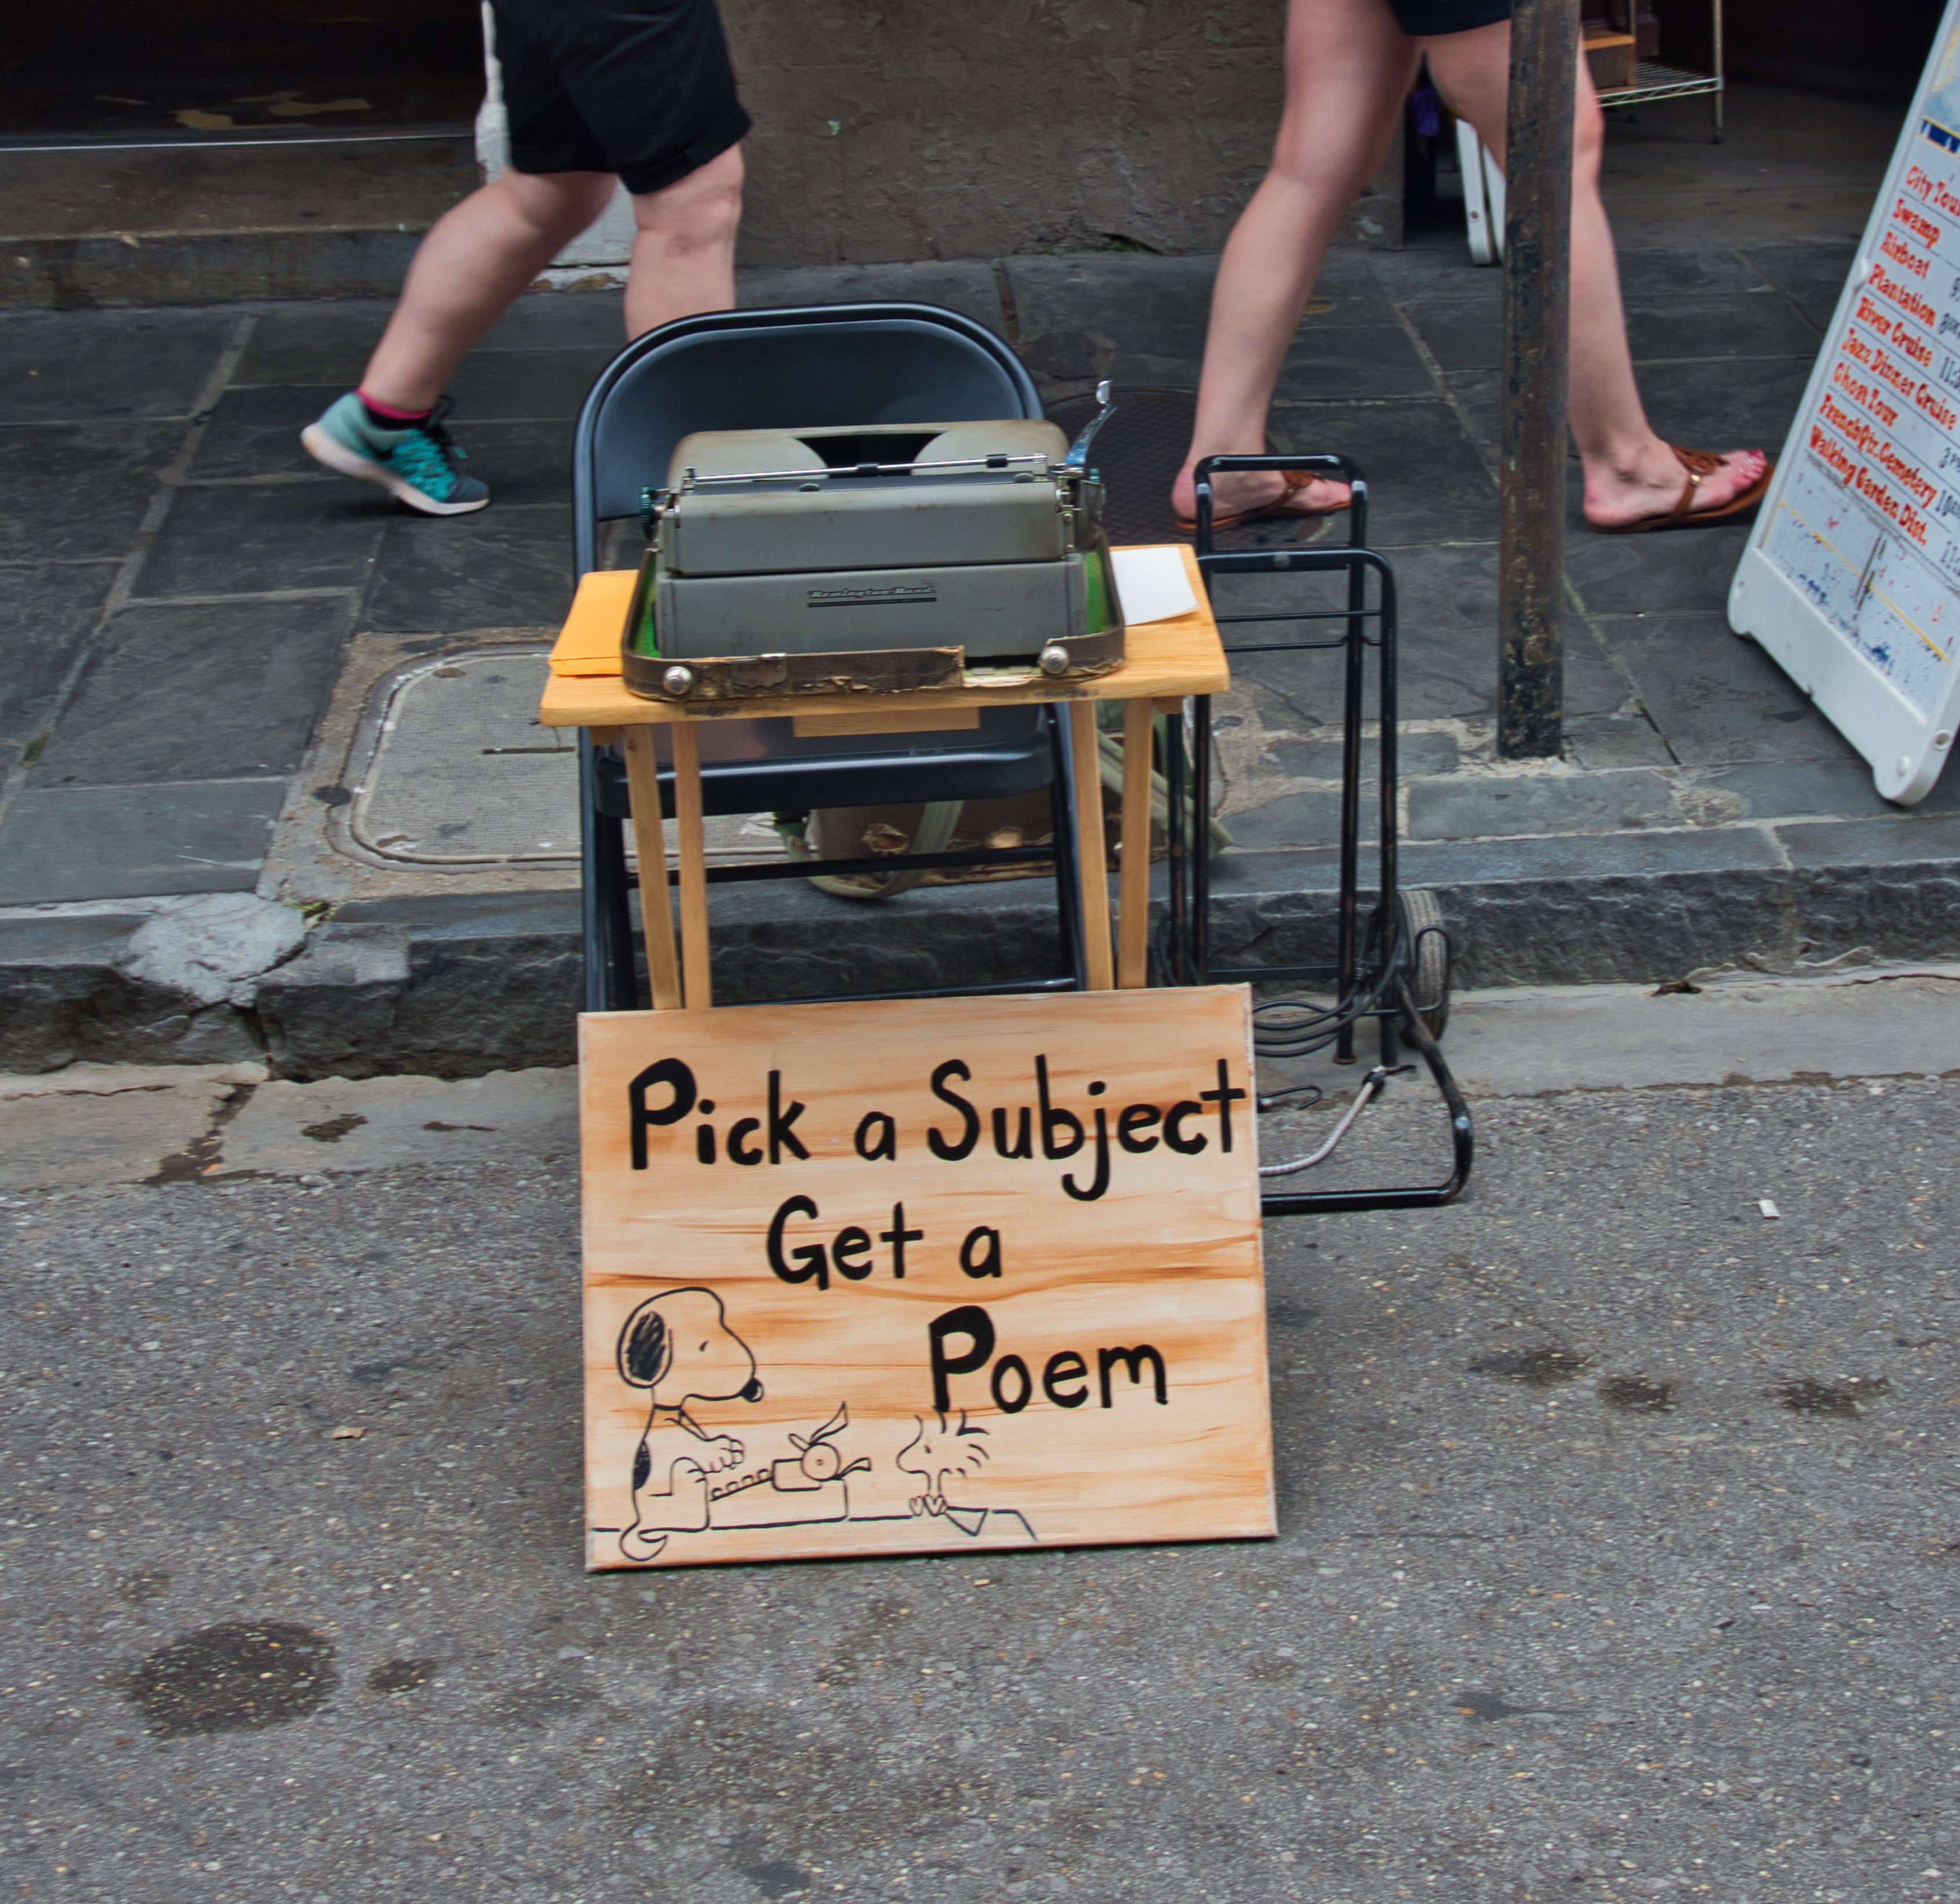 Remington Rand
Pick a Subject
Get a
Poem
City Tour
Swamp
Airboat
Plantation
River Cruise
Jazz Dinner Cruise
Ghost Tour
French Qtr. Cemetery
Walking Garden Dist.